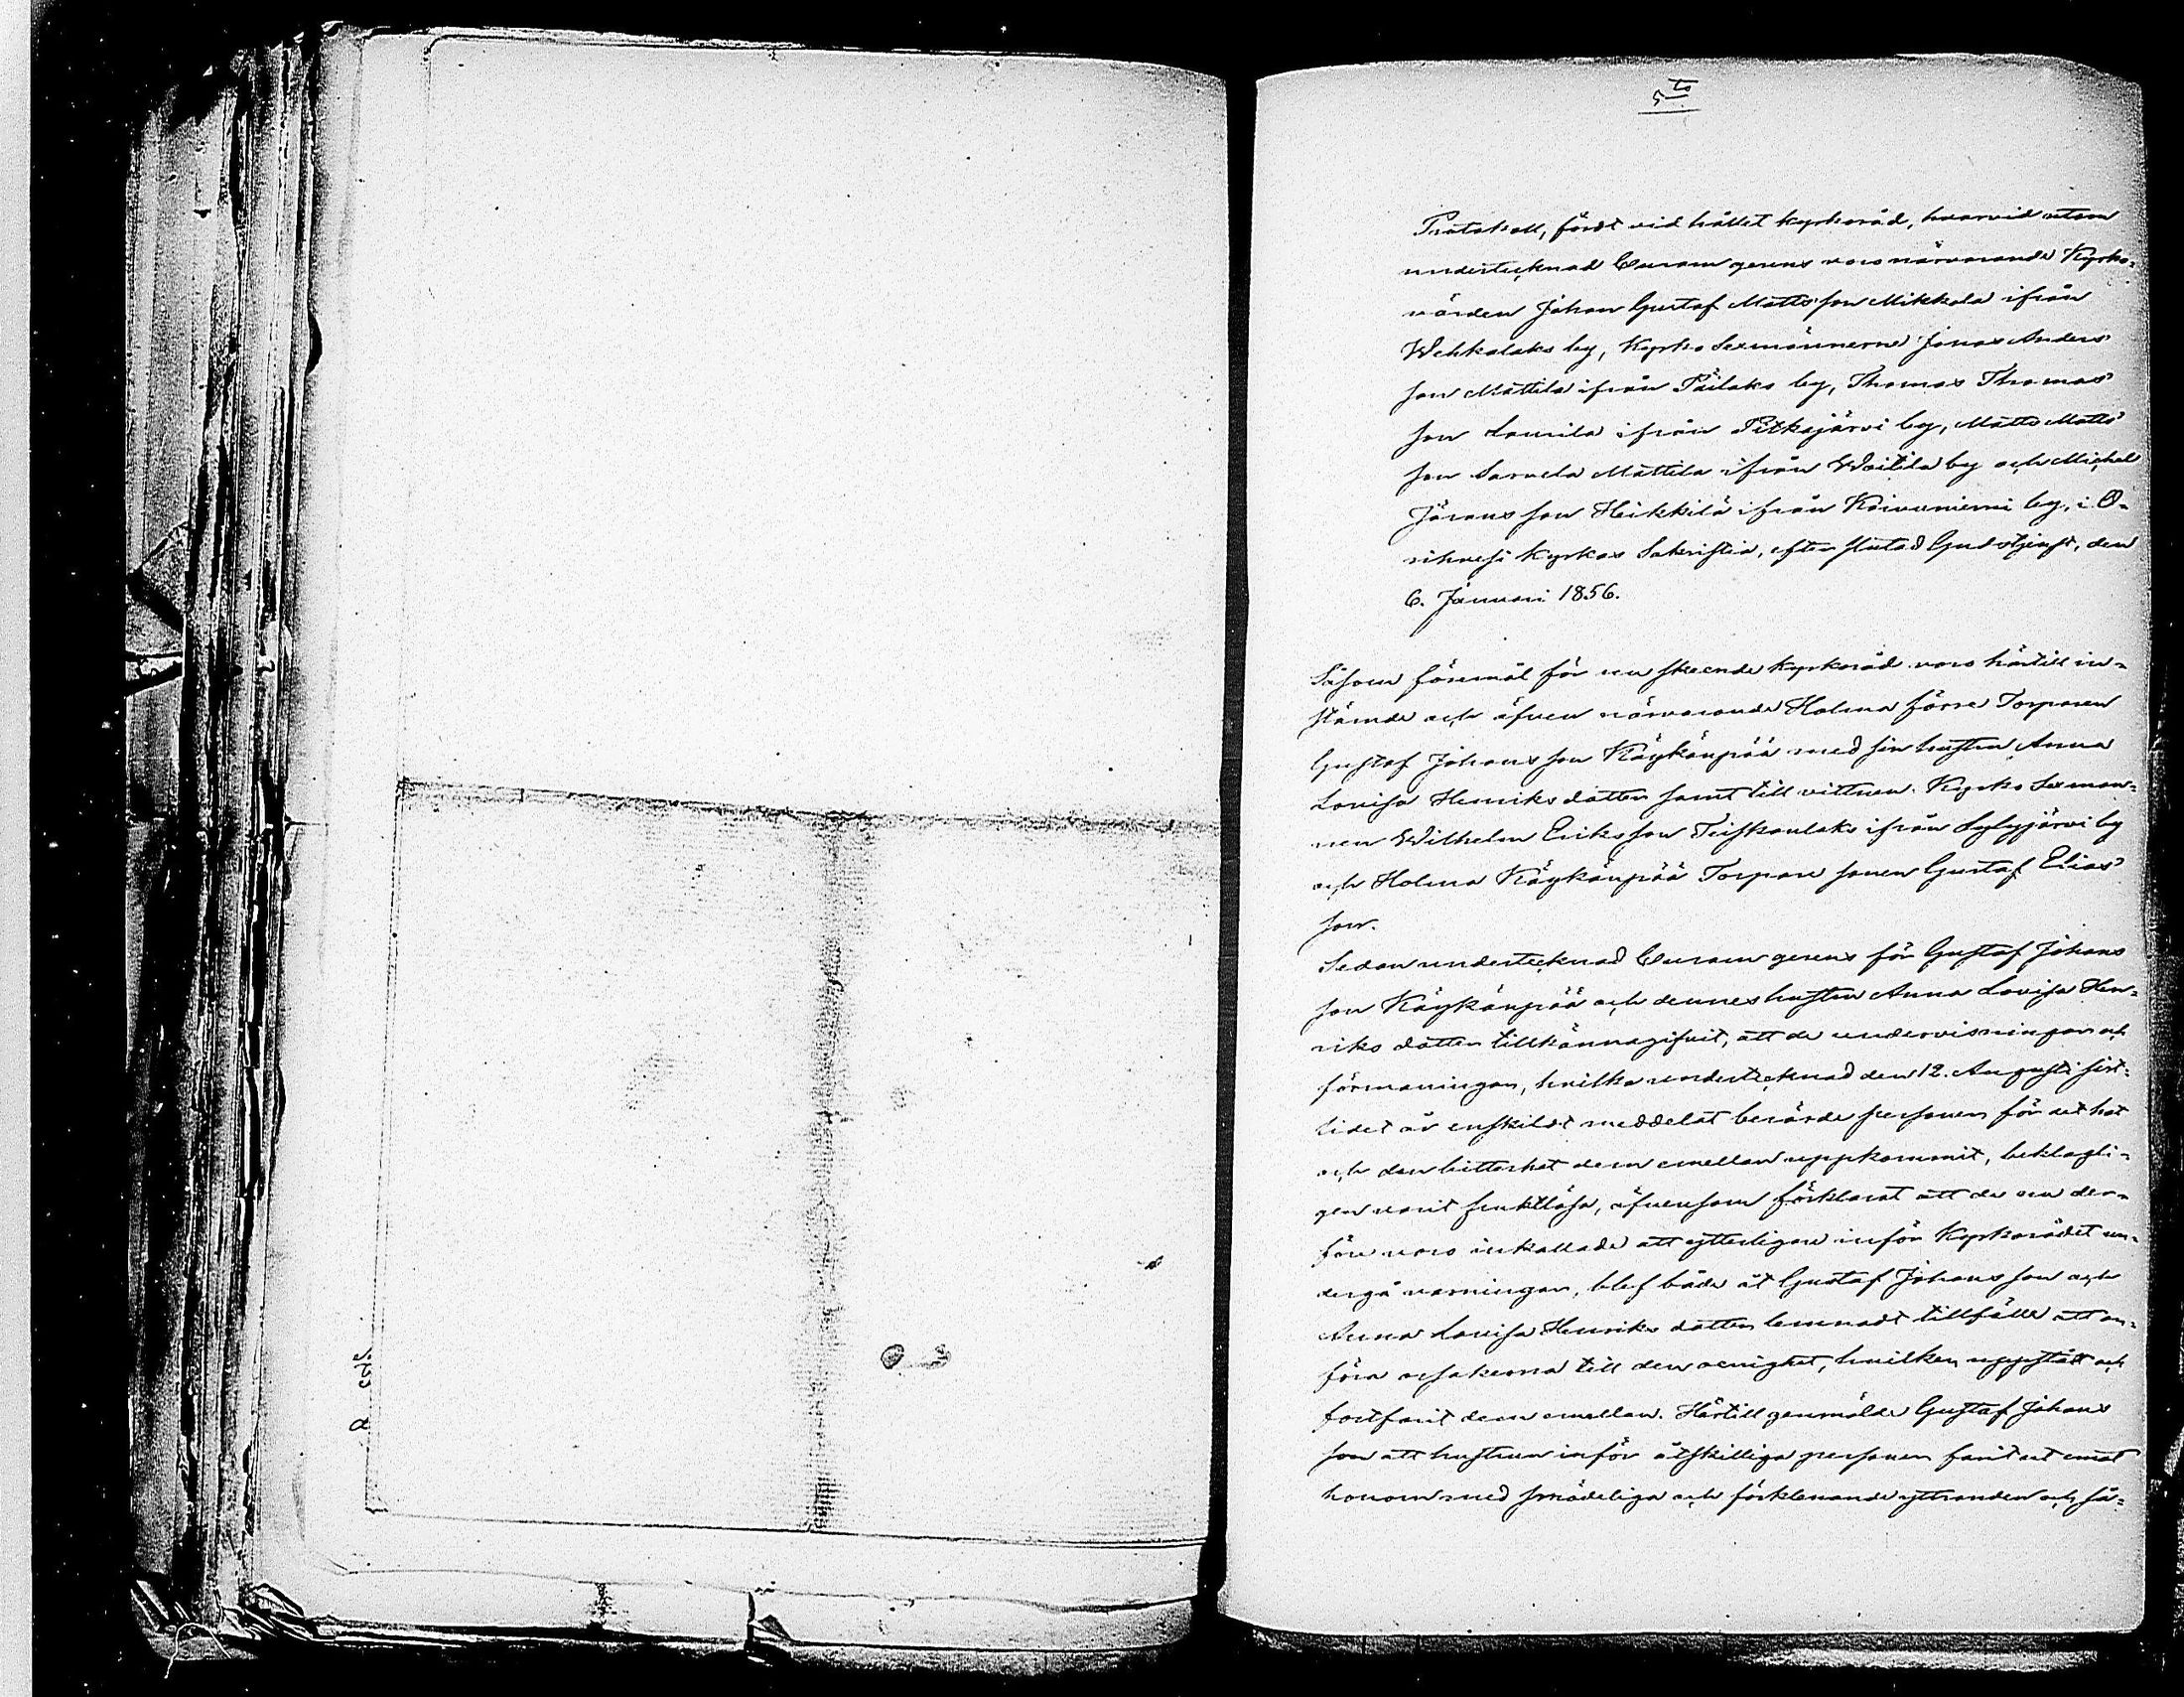 5to
Protokoll, fördt vid hållet kyrkoråd, hvarvid utom
undertecknad Curam gerens voro närvarande Kyrko-
värden Johan Gustaf Mattsson Mikkola ifrån
Wehkalaks by, Kyrko Sexmännerne Jonas Anders
son Mattila ifrån Päilaks by, Thomas Thomas
son Laurila ifrån Pitkäjärvi by, Matts Matts
son Saruela Mattila ifrån Woitila by och Michel
Jöransson Heikkilä ifrån Koivuniemi by, i O-
rihvesi Kyrkas Sakristia, efter slutad Gudstjenst, den
6. Januari 1856.
Såsom föremål för nu skeende kyrkoråd voro härtill in-
stämde och äfven närvarande Holma förre Torparen
Gustaf Johansson Käykänpää med sin hustru Anna
Lovisa Henriksdotter samt till vittnen Kyrko Sexman-
nen Wilhelm Eriksson Teiskonlaks ifrån Sylvyjärvi by
och Holma Käykänpää Torpare sonen Gustaf Elias
son.
Sedan undertecknad Curam gerens för Gustaf Johans
son Käykänpää och dennes hustru Anna Lovisa Hen-
riks dotter tillkännagifvit, att de undervisningar och
förmaningar, hvilka undertecknad den 12. Augusti sist-
lidet år enskildt meddelat berörde personer för det hat
och den bitterhet dem emellan uppkommit, beklagli-
gen varit fruktlösa, äfvensom förklarat att de nu der-
före voro inkallade att ytterligare inför Kyrkorådet un-
dergå varningar, blef både åt Gustaf Johansson och
Anna Lovisa Henriks dotter lemnadt tillfälle att an-
föra orsakerna till den oenighet, hvilken uppstått och
fortfarit dem emellan. Härtill genmälde Gustaf Johans
son att hustrun inför åtskilliga personer farit ut emot
honom med smädeliga och förklenande yttranden och så-